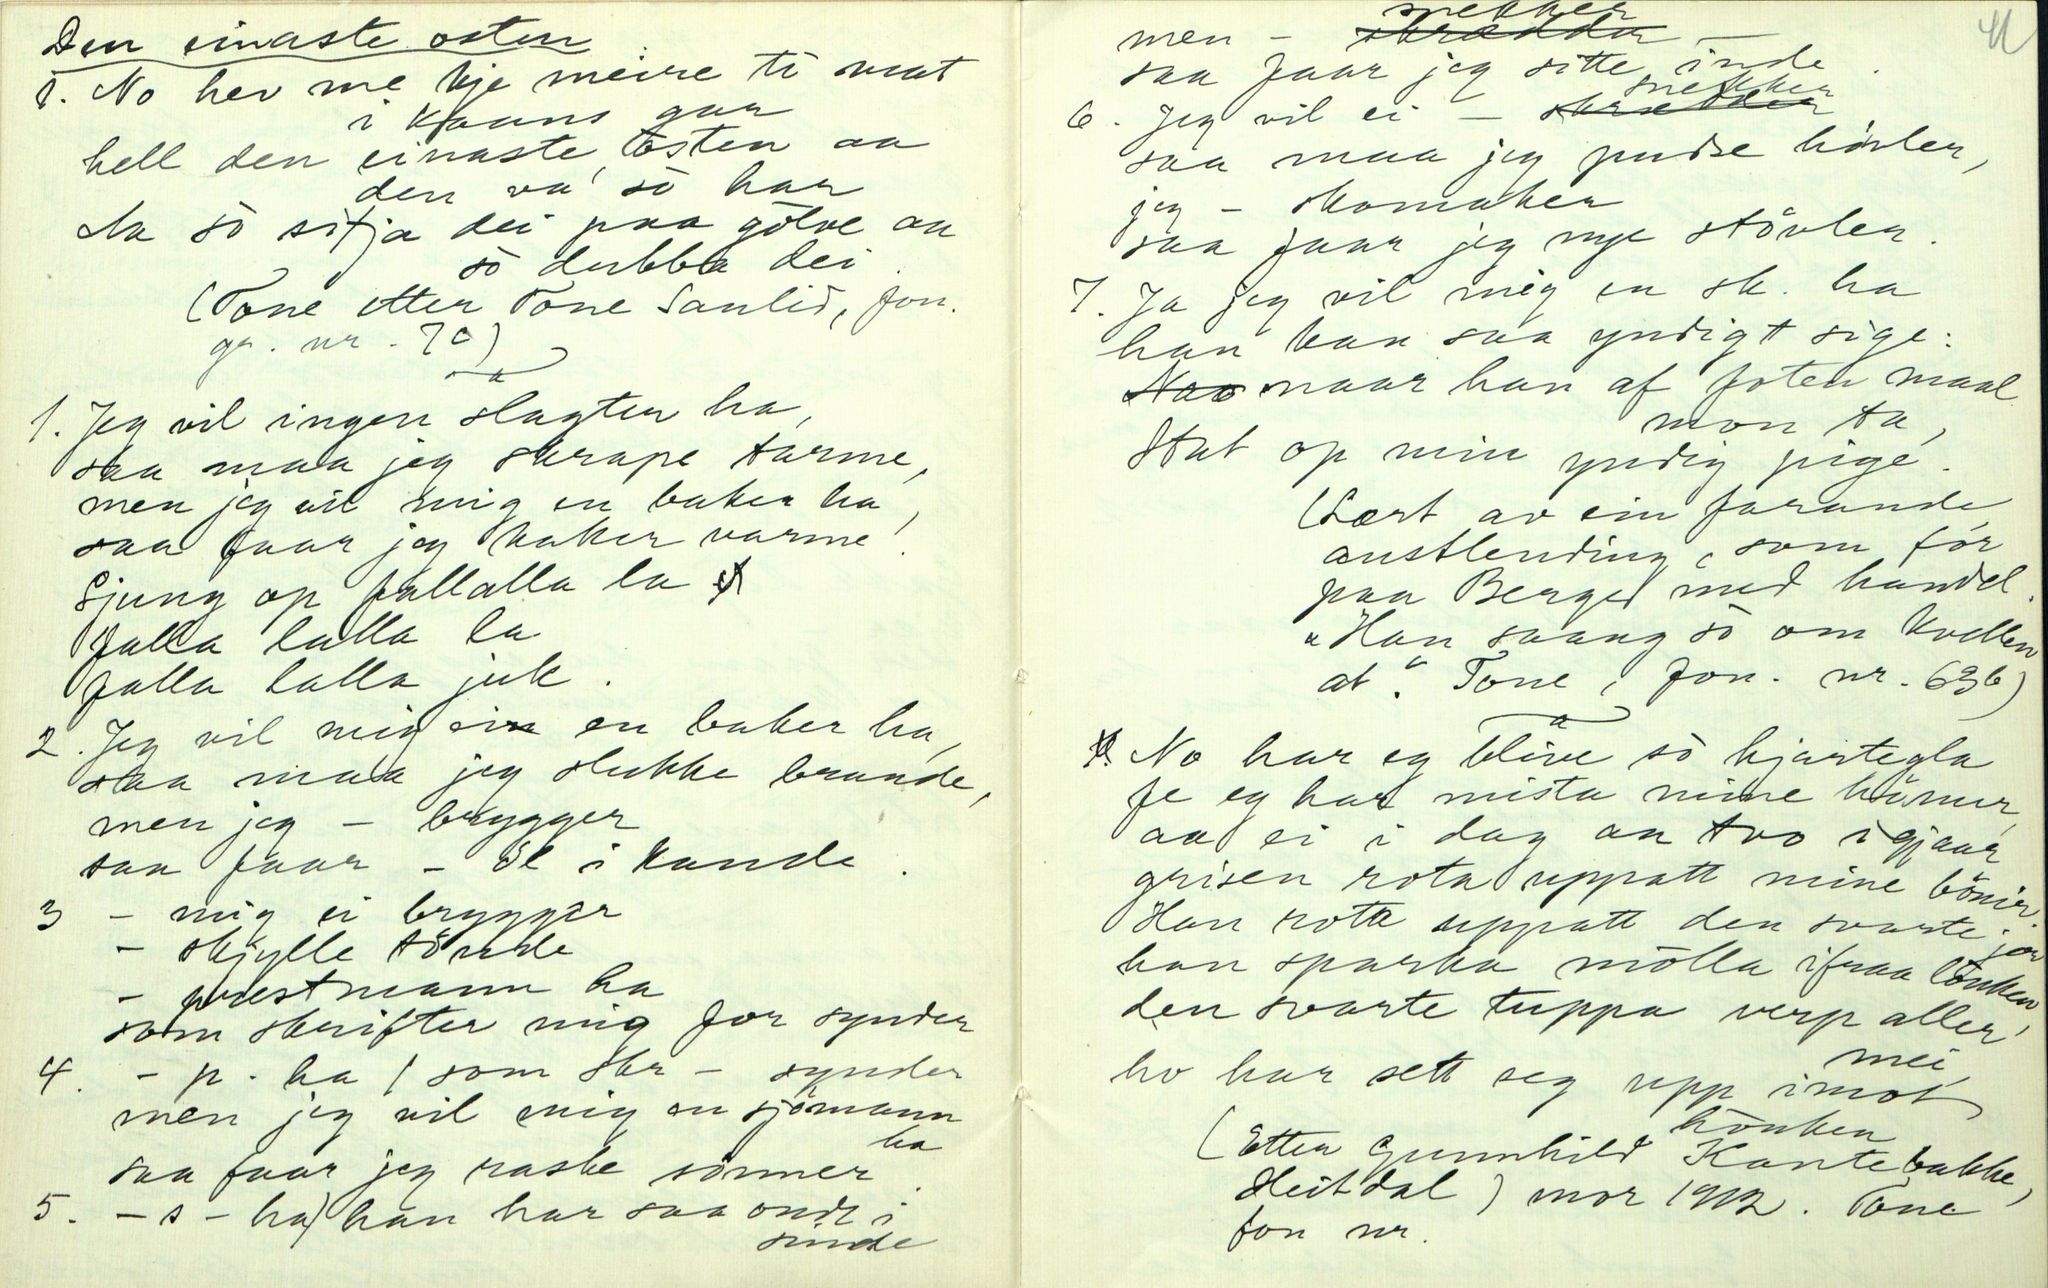 Den einaste osten
1. No hev me kje meire ti mat
i Kaans gar
hell den einaste osten aa
den va so har
Aa so sitja dei paa gölve aa
so dubba dei.
(Tone etter Tone Sanlid, fon.
gr. nr. 70)
1. Jeg vil ingen slagter ha,
saa maa jeg skrape tarme,
men jeg vil mig en baker ha,
saa faar jeg kaker varme.
Sjung op fallalla la
falla lalla la
falla lalla juk.
2. Jeg vil mig ein en baker ha,
saa maa jeg slukke brande,
men jeg – brygger
saa faar – öl i kande.
3 – mig ei brygger
– skylle tönde
– prestmann ha
som skrifter mig for synder
4. – p. ha / som skr – synder
men jeg vil mig en sjömann
ha
saa faar jeg raske sönner.
5. – s – ha) han har saa ondt i
sinde
41
snekker
men – skrædder –
saa faar jeg sitte inde.
snekker
6. Jeg vil ei – skrædder
saa maa jeg pudse hövler,
jeg – skomaker
saa faar jeg nye stövler.
7. Ja jeg vil mig en sk. ha
han kan saa yndigt sige:
Naa naar han af foten maal
mon ta,
Stat op min yndig pige.
(Lært av ein farande
austlending, som for
paa Berge med handel.
"Han saang so om kvellen
at." Tone, fon. nr. 636)
No har eg blive so hjartegla
fe eg har mista mine hönur,
aa ei i dag aa tvo igjaar
grisen rota uppatt mine bönir.
Han rota uppatt den svarte jor
han sparka mölla ifraa lönken,
den svarte tuppa verp aller
mei,
ho har sett seg upp imot
hönken
(Etter Gunnhild Kantebakke,
Heitdal) mor 1912. Tone
fon nr.